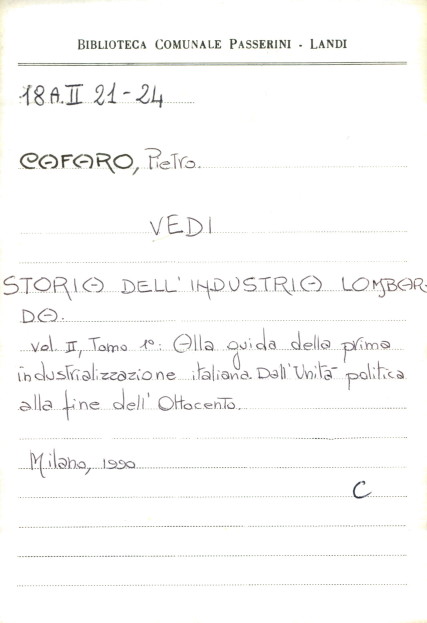 BIBLIOTECA COMUNALE PASSERINI - LANDI
18A.II 21-24
CAFARO, Pietro.
VEDI
STORIA DELL'INDUSTRIA LOMBAR-
DA.
vol. II, Tomo 1°: Alla guida della prima
industrializzazione italiana. Dall'Unità politica
alla fine dell'Ottocento.
Milano, 1990
C